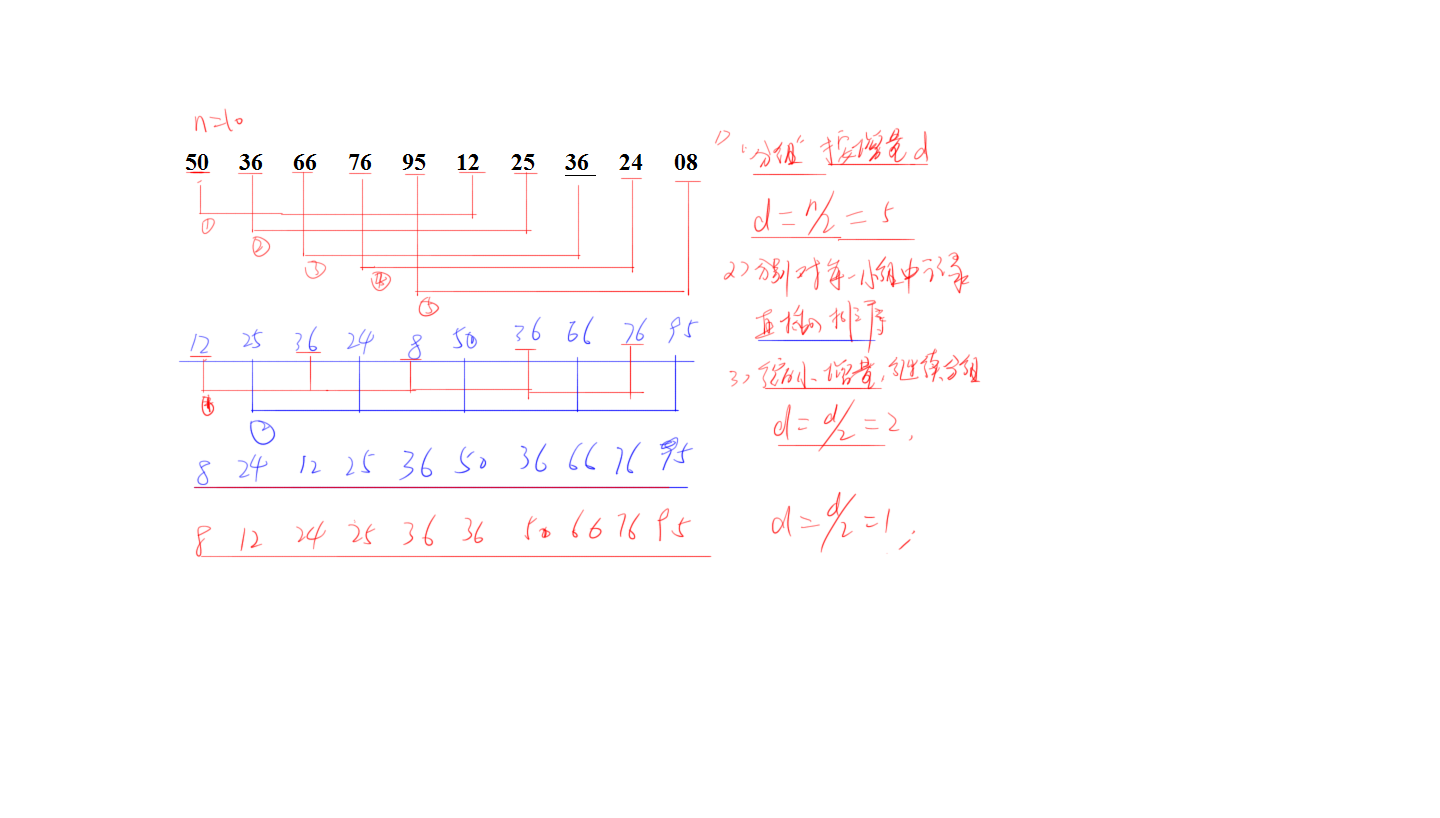 n=10
50 36 66 76 95 12 25 36 24 08
① ② ③ ④ ⑤
12 25 36 24 8 50 36 66 76 95
① ②
8 24 12 25 36 50 36 66 76 95
8 12 24 25 36 36 50 66 76 95
1) "分组" 按增量d
d=n/2=5
2) 分别对每一小组中记录
直接 排序
3) 缩小增量,继续分组
d=d/2=2,
d=d/2=1,